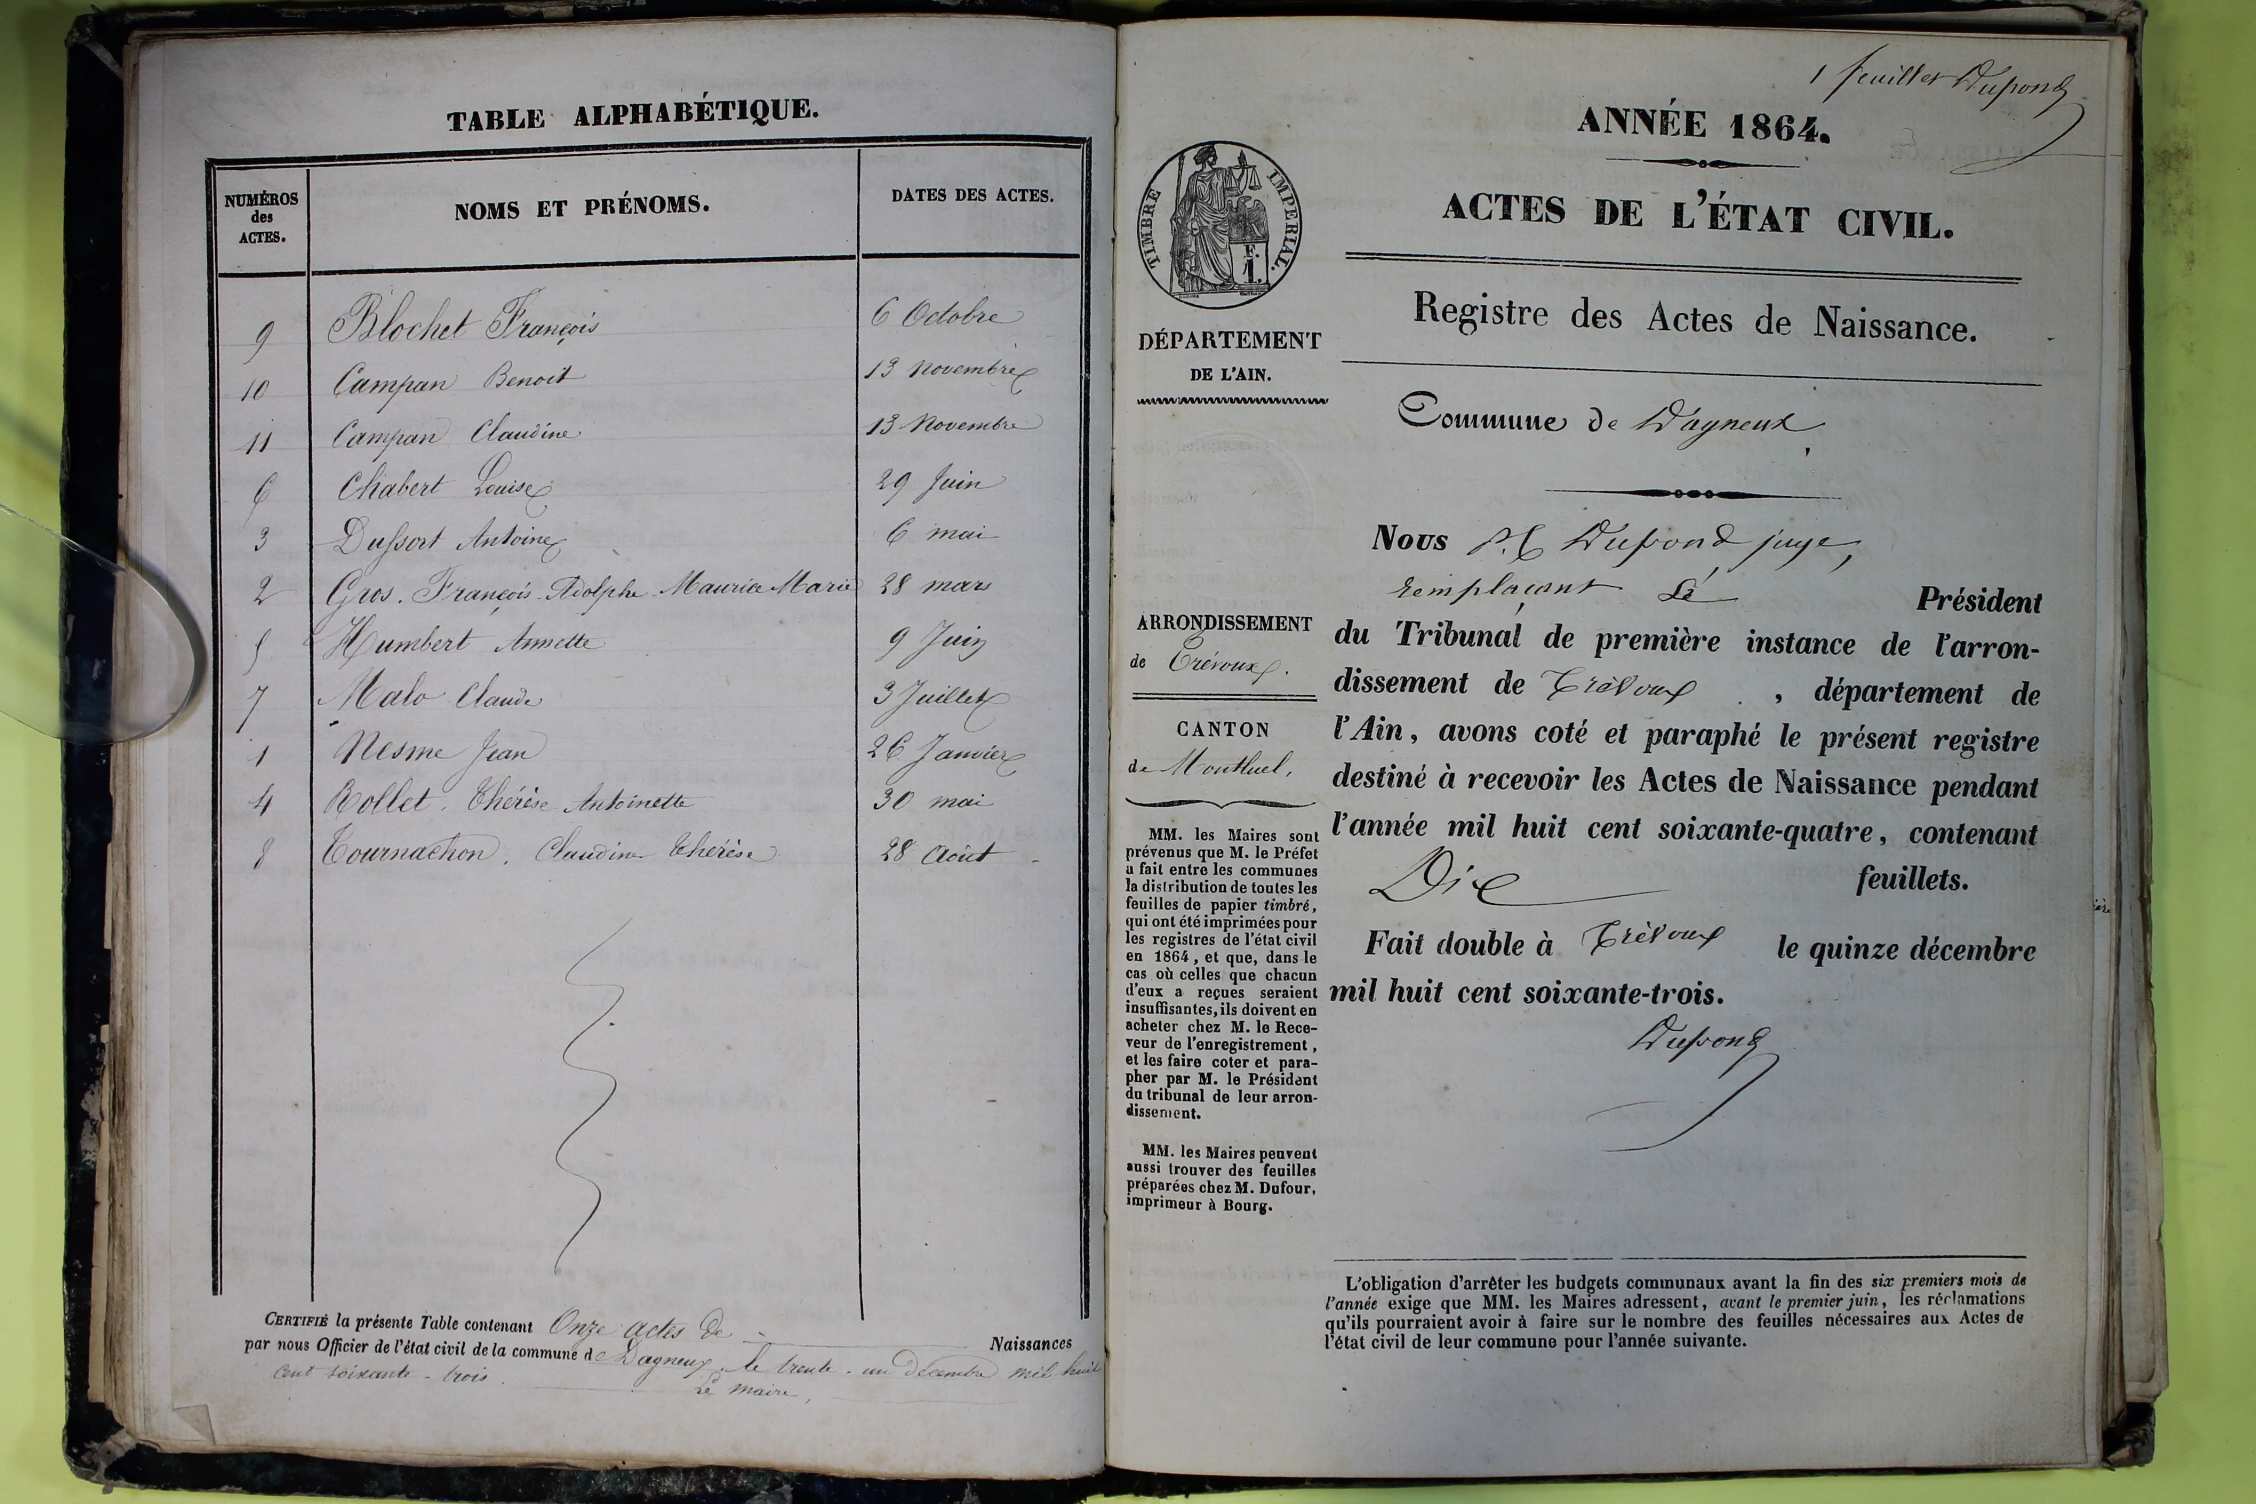 TABLE ALPHABÉTIQUE.
NUMÉROS
des
ACTES.
NOMS ET PRÉNOMS.
DATES DES ACTES.
9 Blochet François 6 Octobre
10 Campan Benoit 13 Novembre
11 Campan Claudine 13 Novembre
6 Chabert Louise 29 Juin
3 Dussort Antoine 6 mai
2 Gros. François-Adolphe-Maurice Marie 28 mars
5 Humbert Annette 9 Juin
7 Malo Claude 3 Juillet
1 Nesme Jean 26 Janvier
4 Rollet. Thérèse Antoinette 30 mai
8 Tournachon. Claudine Thérèse 28 Août
CERTIFIÉ la présente Table contenant Onze actes de Naissances
par nous Officier de l'état civil de la commune de Dagneux, le trente-un décembre mil huit
cent soixante-trois.
Le maire,
1 feuillet Dupond
ANNÉE 1864.
ACTES DE L'ÉTAT CIVIL.
Registre des Actes de Naissance.
TIMBRE IMPERIAL.
F.
1.
DÉPARTEMENT
DE L'AIN.
Commune de Dagneux
ARRONDISSEMENT
de Trévoux.
CANTON
de Montluel.
MM. les Maires sont
prévenus que M. le Préfet
a fait entre les communes
la distribution de toutes les
feuilles de papier timbré,
qui ont été imprimées pour
les registres de l'état civil
en 1864, et que, dans le
cas où celles que chacun
d'eux a reçues seraient
insuffisantes, ils doivent en
acheter chez M. le Rece-
veur de l'enregistrement,
et les faire coter et para-
pher par M. le Président
du tribunal de leur arron-
dissement.
MM. les Maires peuvent
aussi trouver des feuilles
préparées chez M. Dufour,
imprimeur à Bourg.
Nous Dupond juge,
remplaçant Le Président
du Tribunal de première instance de l'arron-
dissement de Trévoux, département de
l'Ain, avons coté et paraphé le présent registre
destiné à recevoir les Actes de Naissance pendant
l'année mil huit cent soixante-quatre, contenant
Dix feuillets.
Fait double à Trévoux le quinze décembre
mil huit cent soixante-trois.
Dupond
L'obligation d'arrêter les budgets communaux avant la fin des six premiers mois de
l'année exige que MM. les Maires adressent, avant le premier juin, les réclamations
qu'ils pourraient avoir à faire sur le nombre des feuilles nécessaires aux Actes de
l'état civil de leur commune pour l'année suivante.